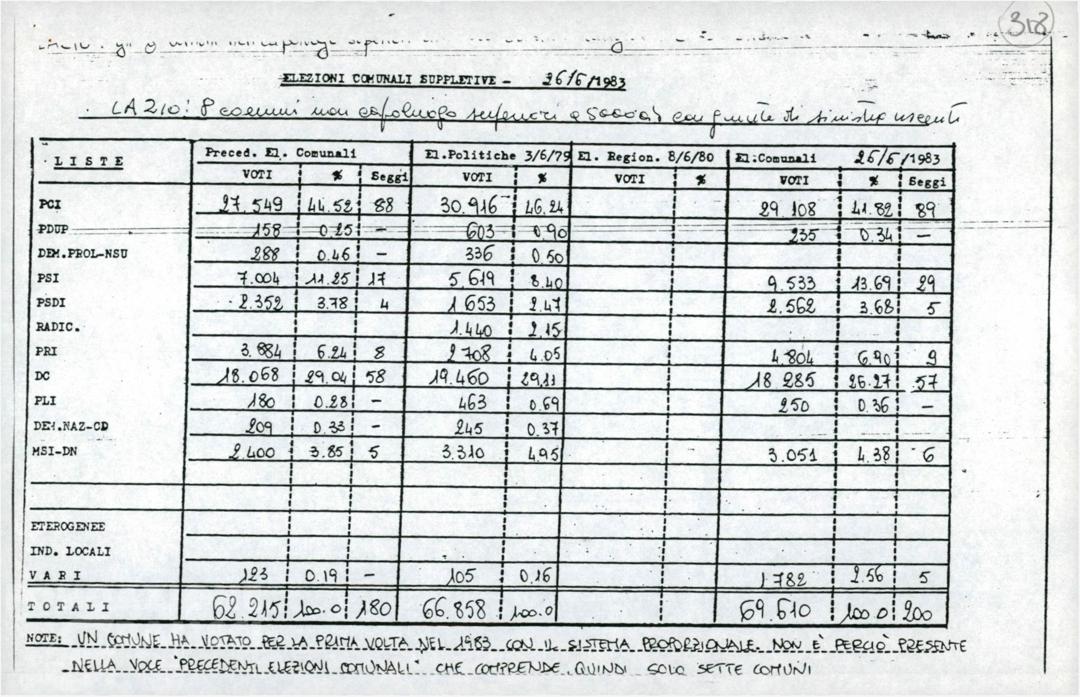 318
ELEZIONI COMUNALI SUPPLETIVE - 26/6/1983
LAZIO: 8 comuni non capoluogo superiori a 5000 ab con giunte di sinistra uscenti
LISTE Preced. El. Comunali El.Politiche 3/6/79 El. Region. 8/6/80 El.Comunali 26/6/1983
VOTI % Seggi VOTI % VOTI % VOTI % Seggi
PCI 27.549 44.52 88 30.916 46.24 29.108 41.82 89
PDUP 158 0.25 - 603 0.90 235 0.34 -
DEM.PROL-NSU 288 0.46 - 336 0.50
PSI 7.004 11.25 17 5.619 8.40 9.533 13.69 29
PSDI 2.352 3.78 4 1653 2.47 2.562 3.68 5
RADIC. 1.440 2.15
PRI 3.884 6.24 8 2708 4.05 4.804 6.90 9
DC 18.068 29.04 58 19.460 29.11 18.285 26.27 57
PLI 180 0.28 - 463 0.69 250 0.36 -
DEM.NAZ-CD 209 0.33 - 245 0.37
MSI-DN 2.400 3.85 5 3.310 4.95 3.051 4.38 6
ETEROGENEE
IND. LOCALI
VARI 123 0.19 - 105 0.16 1782 2.56 5
TOTALI 62.215 100.0 180 66.858 100.0 69.610 100.0 200
NOTE: UN COMUNE HA VOTATO PER LA PRIMA VOLTA NEL 1983 CON IL SISTEMA PROPORZIONALE. NON È PERCIÒ PRESENTE
NELLA VOCE "PRECEDENTI ELEZIONI COMUNALI" CHE COMPRENDE QUINDI SOLO SETTE COMUNI